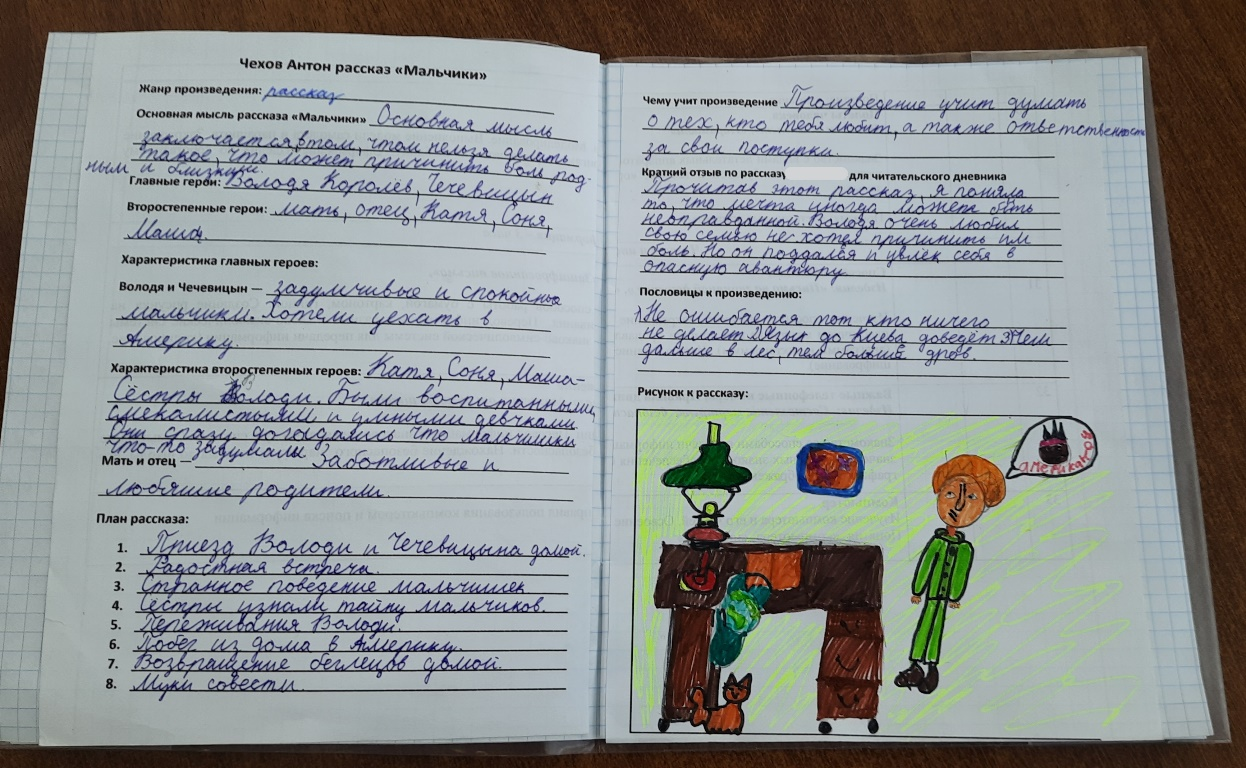 Чехов Антон рассказ «Мальчики»
Жанр произведения: рассказ
Основная мысль рассказа «Мальчики» Основная мысль
заключается в том, что нельзя делать
такое, что может причинить боль род-
ным и близким.
Главные герои: Володя Королёв, Чечевицын
Второстепенные герои: мать, отец, Катя, Соня,
Маша.
Характеристика главных героев:
Володя и Чечевицын – задумчивые и спокойные
мальчики. Хотели уехать в
Америку.
Характеристика второстепенных героев: Катя, Соня, Маша-
Сёстры Володи. Были воспитанными,
смекалистыми и умными девчками.
Они сразу догадались что мальчишки
что-то задумали.
Мать и отец – Заботливые и
любящие родители.
План рассказа:
1. Приезд Володи и Чечевицына домой.
2. Радостная встреча.
3. Странное поведение мальчишек
4. Сёстры узнали тайну мальчиков.
5. Переживания Володи.
6. Побег из дома в Америку.
7. Возвращение беглецов домой.
8. Муки совести.
Чему учит произведение Произведение учит думать
о тех, кто тебя любит, а также ответственности
за свои поступки.
Краткий отзыв по рассказу для читательского дневника
Прочитав этот рассказ, я поняла
то, что мечта иногда может быть
неоправданной. Володя очень любил
свою семью не хотел причинить им
боль. Но он поддался и увлёк себя в
опасную авантюру
Пословицы к произведению:
1) Не ошибается тот кто ничего
не делает 2) Язык до Киева доведёт 3) Чем
дальше в лес, тем больше дров.
Рисунок к рассказу:
америка